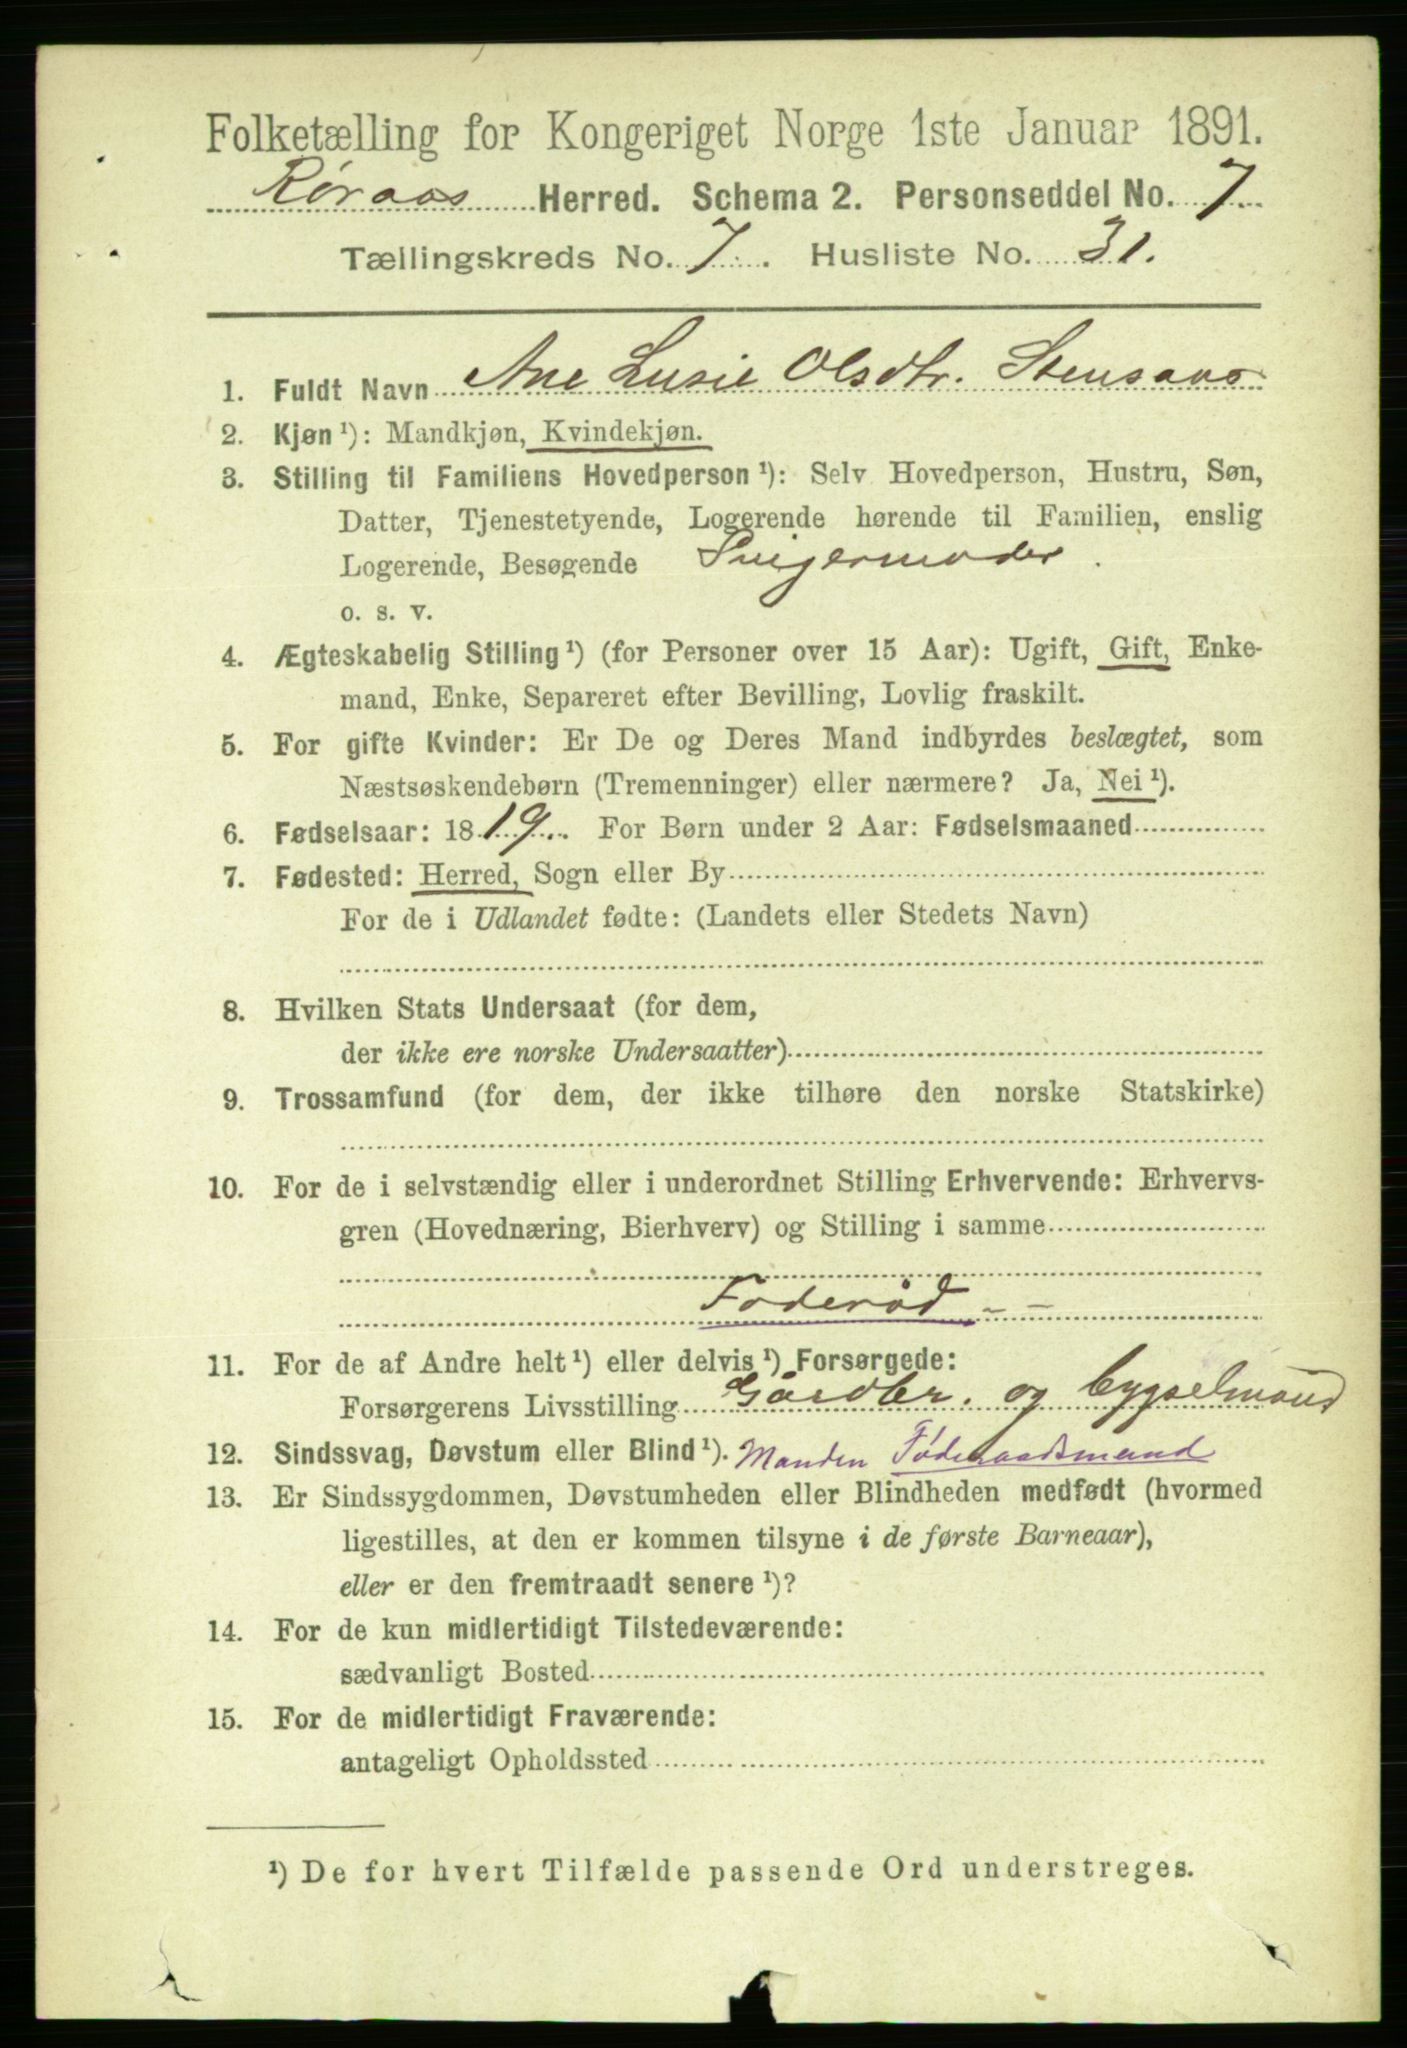 Folketælling for Kongeriget Norge 1ste Januar 1891.
Røraas Herred. Schema 2. Personseddel No. 7
Tællingskreds No. 7. Husliste No. 31.
1. Fuldt Navn Ane Lusie Olsdtr. Stensaas
2. Kjøn ¹): Mandkjøn, Kvindekjøn.
3. Stilling til Familiens Hovedperson ¹): Selv Hovedperson, Hustru, Søn,
Datter, Tjenestetyende, Logerende hørende til Familien, enslig
Logerende, Besøgende Svigermoder.
o. s. v.
4. Ægteskabelig Stilling ¹) (for Personer over 15 Aar): Ugift, Gift, Enke-
mand, Enke, Separeret efter Bevilling, Lovlig fraskilt.
5. For gifte Kvinder: Er De og Deres Mand indbyrdes beslægtet, som
Næstsøskendebørn (Tremenninger) eller nærmere? Ja, Nei ¹).
6. Fødselsaar: 1819. For Børn under 2 Aar: Fødselsmaaned
7. Fødested: Herred, Sogn eller By
For de i Udlandet fødte: (Landets eller Stedets Navn)
8. Hvilken Stats Undersaat (for dem,
der ikke ere norske Undersaatter)
9. Trossamfund (for dem, der ikke tilhøre den norske Statskirke)
10. For de i selvstændig eller i underordnet Stilling Erhvervende: Erhvervs-
gren (Hovednæring, Bierhverv) og Stilling i samme
Foderåd - -
11. For de af Andre helt ¹) eller delvis ¹) Forsørgede:
Forsørgerens Livsstilling Gårdbr. og bygselmand
12. Sindssvag, Døvstum eller Blind ¹). Manden Føderaadsmand
13. Er Sindssygdommen, Døvstumheden eller Blindheden medfødt (hvormed
ligestilles, at den er kommen tilsyne i de første Barneaar),
eller er den fremtraadt senere ¹)?
14. For de kun midlertidigt Tilstedeværende:
sædvanligt Bosted
15. For de midlertidigt Fraværende:
antageligt Opholdssted
¹) De for hvert Tilfælde passende Ord understreges.